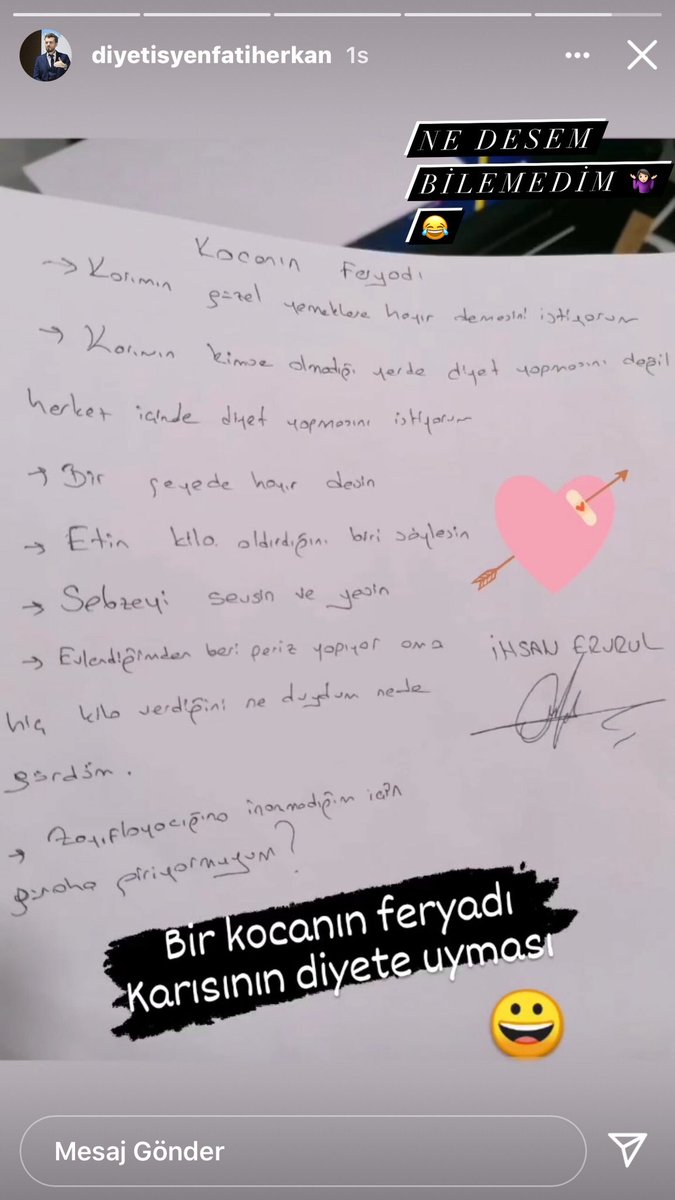 diyetisyenfatiherkan 1s
NE DESEM
BİLEMEDİM 🤷🏻‍♀️
😂
Kocanın feryadı
→ Karımın güzel yemeklere hayır demesini istiyorum
→ Karımın kimse olmadığı yerde diyet yapmasını değil
herkes içinde diyet yapmasını istiyorum
→ Bir şeyede hayır desin
→ Etin kilo aldırdığını biri söylesin
→ Sebzeyi sevsin ve yesin
→ Evlendiğimden beri periz yapıyor ama
hiç kilo verdiğini ne duydum nede
gördüm.
İHSAN ERURUL
→ Zayıflayacığına inanmadığım için
günaha giriyormuyum?
Bir kocanın feryadı
Karısının diyete uyması
😀
Mesaj Gönder